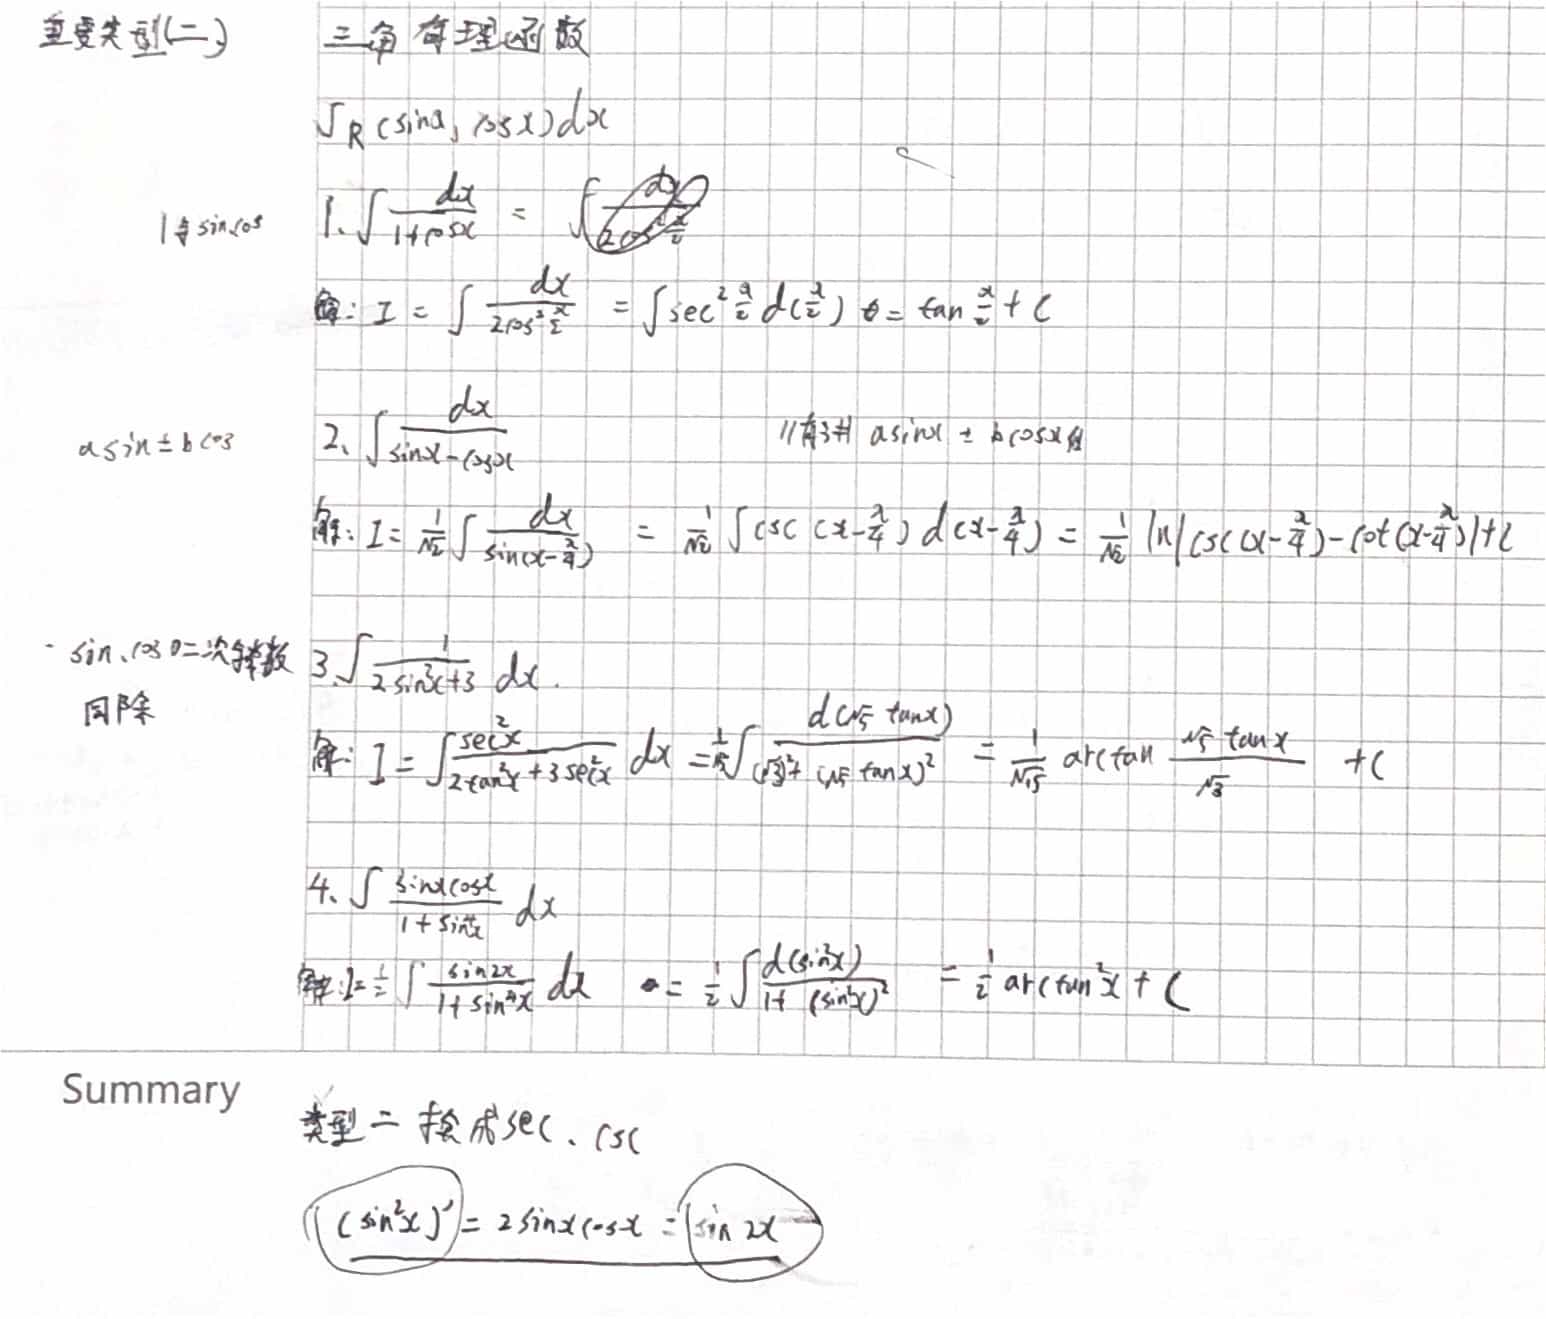 重要类型(二) 三角有理函数
∫R(sinx, cosx)dx
1与sin.cos 1、∫ dx/(1+cosx) =
解: I = ∫ dx/(2cos² x/2) = ∫sec² x/2 d(x/2) = tan x/2 + C
asin ± bcos 2、∫ dx/(sinx-cosx) asinx ± bcosx
解: I = 1/√2 ∫ dx/sin(x-π/4) = 1/√2 ∫csc(x-π/4) d(x-π/4) = 1/√2 ln|csc(x-π/4)-cot(x-π/4)|+C
sin、cos 二次 3、∫ 1/(2sin²x+3) dx.
同除
解: I = ∫ sec²x/(2tan²x+3sec²x) dx = 1/√5 ∫ d(√5 tanx)/((√3)²+(√5 tanx)²) = 1/√15 arctan (√5 tanx)/√3 + C
4、∫ sinxcosx/(1+sin⁴x) dx
解: I = 1/2 ∫ sin2x/(1+sin⁴x) dx = 1/2 ∫ d(sin²x)/(1+(sin²x)²) = 1/2 arctan²x + C
Summary
类型二 换成sec、csc
(sin²x)' = 2sinxcosx = sin2x